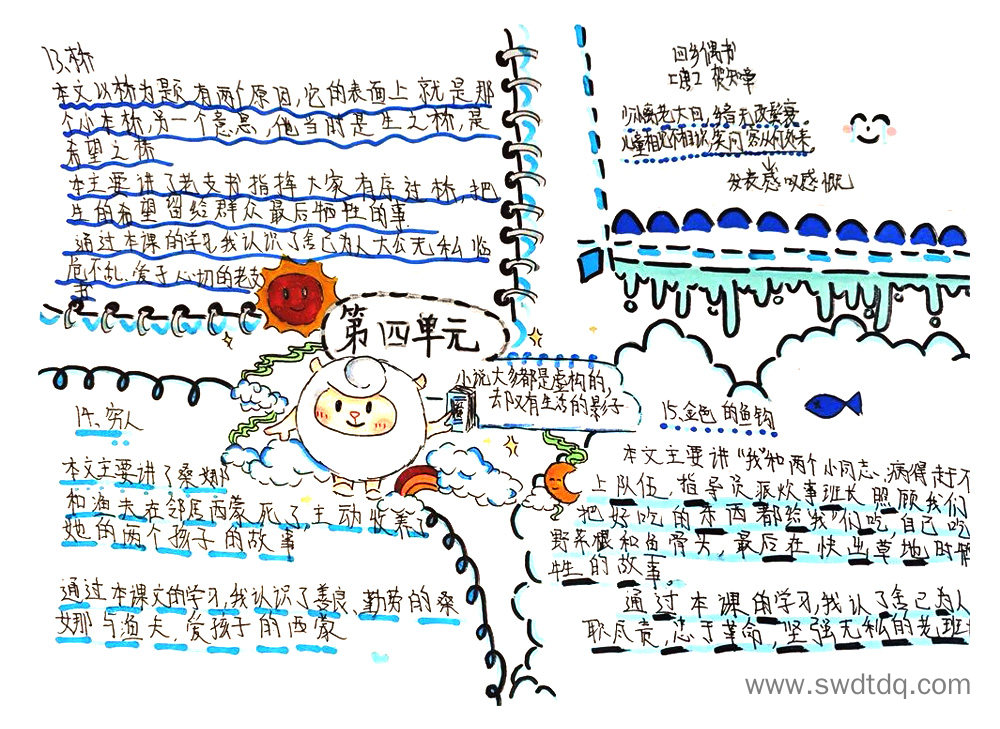 13、桥
本文以桥为题有两个原因,它的表面上就是那
个小木桥,另一个意思,他当时是生之桥,是
希望之桥
本主要讲了老支书指挥大家有序过桥,把
生的希望留给群众最后牺牲的事
通过本课的学习我认识了舍己为人大公无私临
危不乱、爱子心切的老支
书
回乡偶书
贺知章
少小离老大回,乡音无改鬓衰,
儿童相见不相识,笑问客从何处来,
发表感叹感慨
第四单元
小说大多都是虚构的,
却又有生活的影子
14、穷人
本文主要讲了桑娜
和渔夫在邻居西蒙死了,主动收养了
她的两个孩子的故事
通过本课文的学习,我认识了善良、勤劳的桑
娜与渔夫,爱孩子的西蒙
15、金色的鱼钩
本文主要讲“我”和两个小同志、病得赶不
上队伍,指导员派炊事班长照顾我们
把好吃的东西都给“我”们吃,自己吃
野菜根和鱼骨头,最后在快出草地时牺
牲的故事。
通过本课的学习,我认了舍己为人
职尽责,忠于革命,坚强无私的老班
www.swdtdq.com